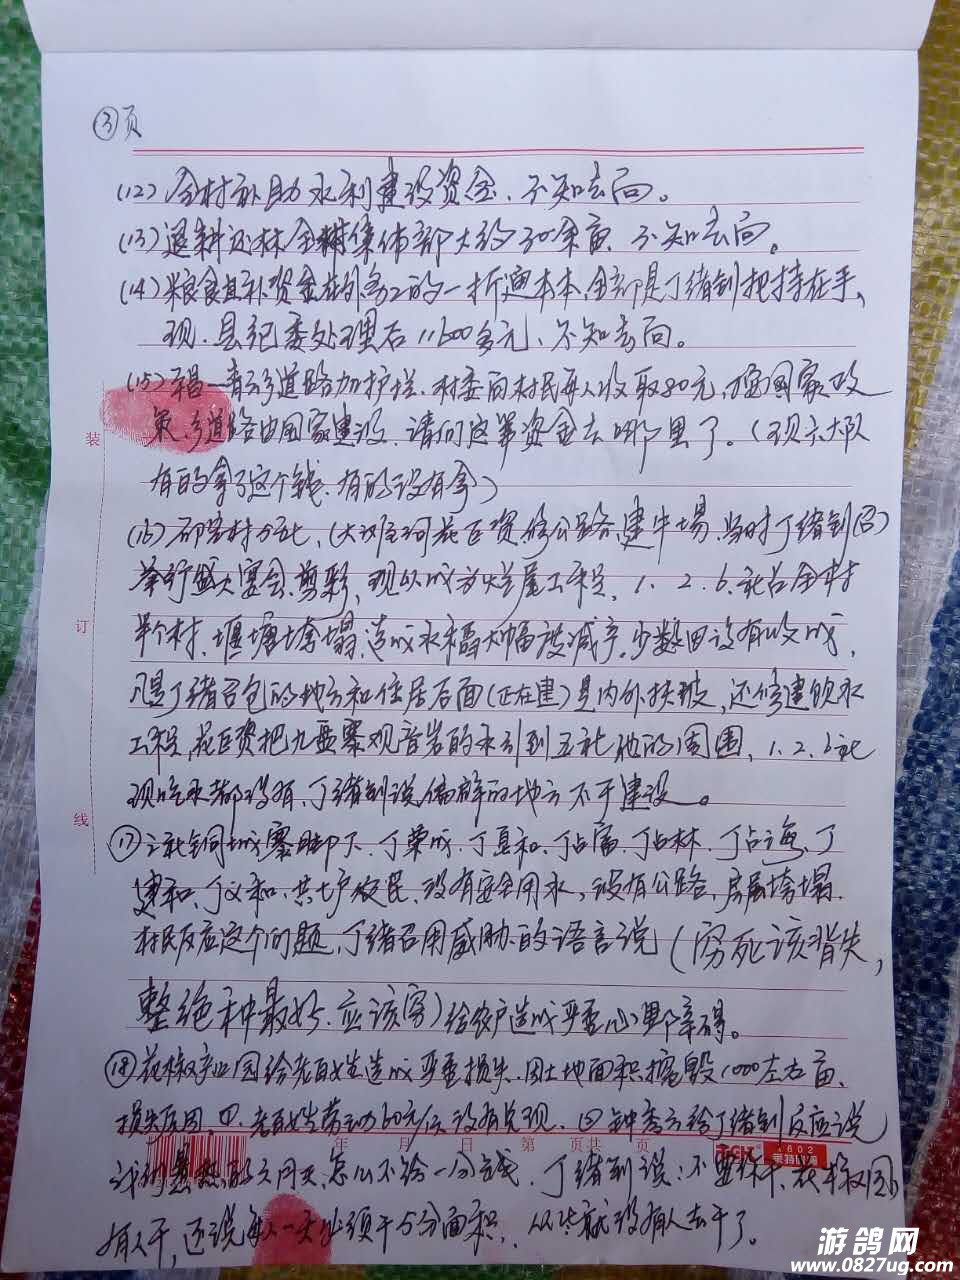 ③页
(12) 全村补助水利建设资金、不知去向。
(13) 退耕还林全村集体部大约30余亩、不知去向。
(14) 粮食直补资金在外务工的一折通本本、全部是丁绪剑把持在手、
现.县纪委处理后11600多元、不知去向。
(15) 一青云乡道路加护栏、村委向村民每人收取80元、国家政
策、乡道路由国家建设、请问这笔资金去哪里了。(现六大队
有的拿了这个钱、有的没有拿)
(16) 花巨资修公路、建牛场、当时丁绪剑
举行盛大宴会、剪彩、现以成为烂尾工程、1、2、6、社占全村
半个村、堰塘垮塌、造成水稻大幅度减产、少数田没有收成、
凡是丁绪召包的地方和住居后面(正在建)是内外扶坡、还修建饮水
工程、花巨资把九盘寨观音岩的水引到五社他的周围、1、2、6社
现吃水都没有、丁绪剑说偏僻的地方不予建设。
⑰ 社铜城寨脚下、丁荣成、丁真和、丁占富、丁占林、丁占海、丁
建和、丁义和、共七户农民、没有安全用水、没有公路、房屋垮塌、
村民反应这个问题、丁绪召用威胁的语言说(穷死该背失,
整绝种最好、应该穷)给农户造成严重心理障碍。
⑱ 花椒产业园给老百姓造成严重损失、田土地面积搞毁1000左右亩、
损失后用、老百姓劳动60元/次没有兑现、四钟秀云给丁绪剑反应说
天、怎么不给一分钱、丁绪剑说:不要你干、花椒园
有人干,还说每人一天必须干5分面积、从此就没有人去干了。
装
订
线
年 月 日 第 页共 页
游鸽网
www.0827ug.com